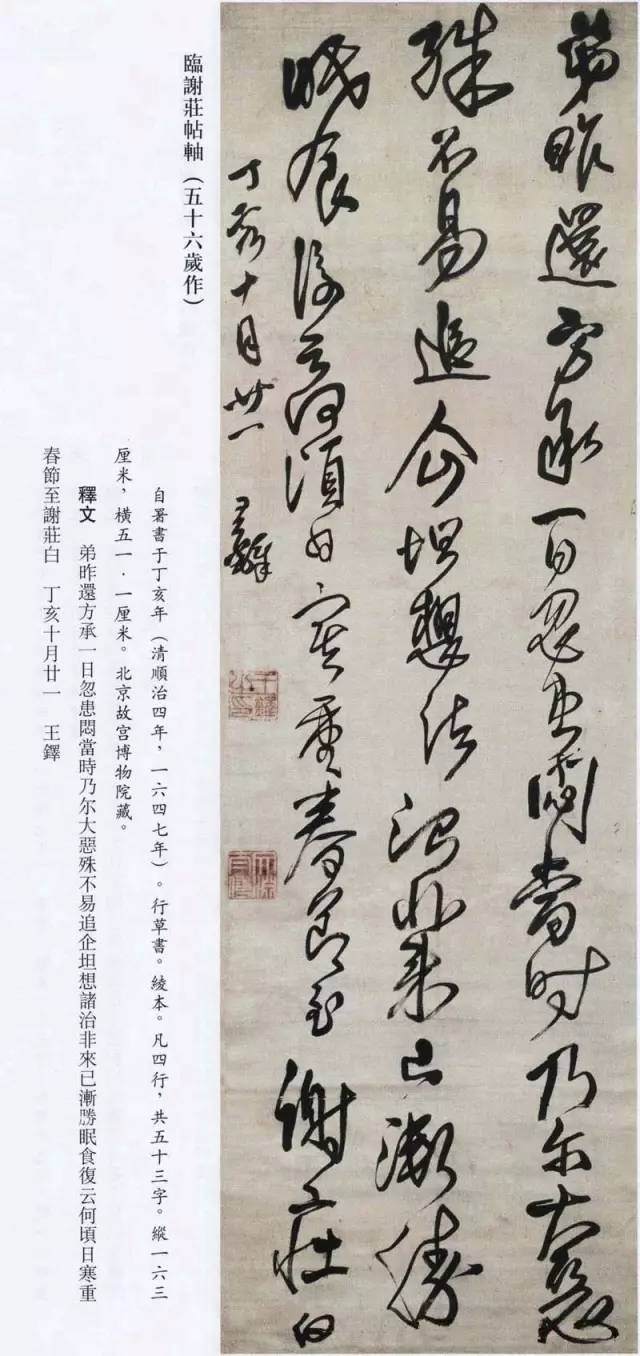 弟昨還方承一日忽患悶當時乃尔大惡
殊不易追企坦想諸治非来已漸勝
眠食復云何頃日寒重春節至謝莊白
丁亥十月廿一 王鐸
王鐸之印
臨謝莊帖軸（五十六歲作）
自署書于丁亥年（清順治四年，一六四七年）。行草書。綾本。凡四行，共五十三字。縱一六三
厘米，橫五一·一厘米。北京故宮博物院藏。
釋文 弟昨還方承一日忽患悶當時乃尔大惡殊不易追企坦想諸治非來已漸勝眠食復云何頃日寒重
春節至謝莊白 丁亥十月廿一 王鐸